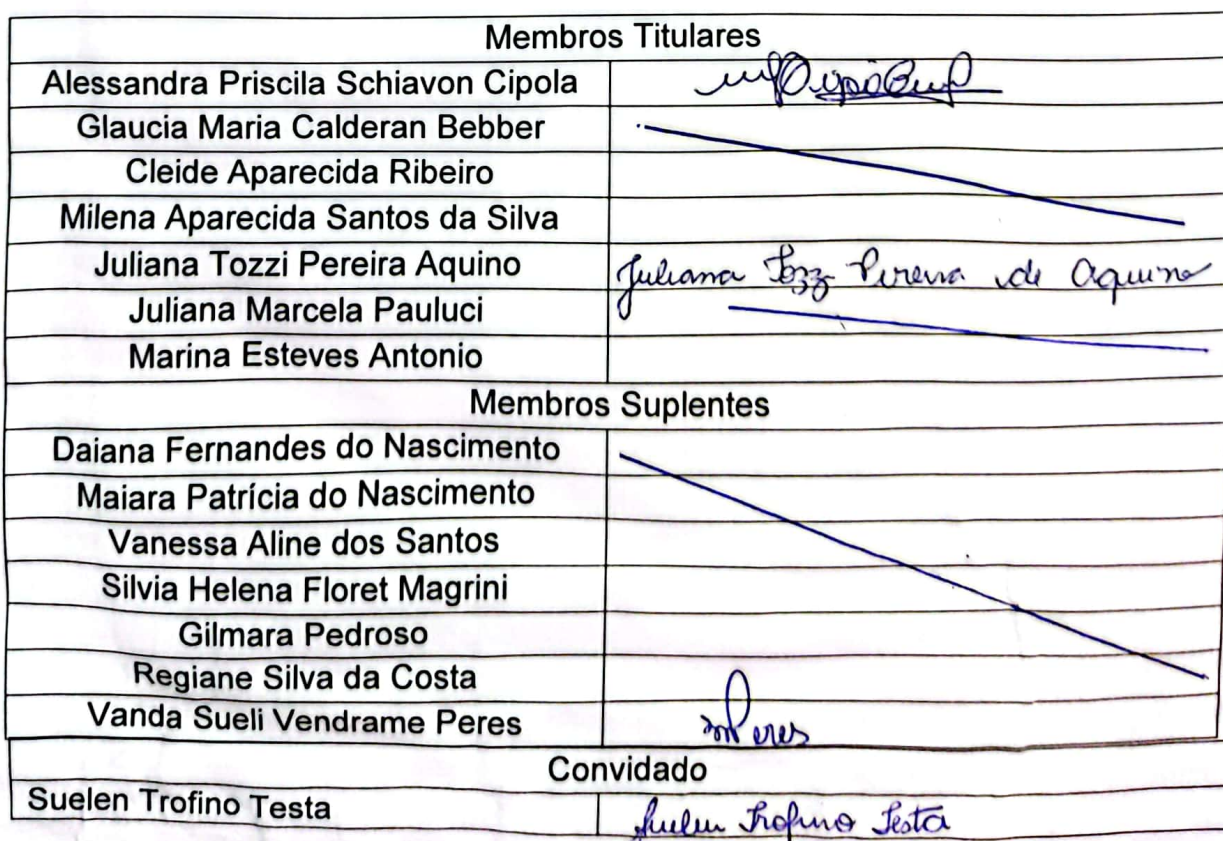 Membros Titulares
Alessandra Priscila Schiavon Cipola
Glaucia Maria Calderan Bebber
Cleide Aparecida Ribeiro
Milena Aparecida Santos da Silva
Juliana Tozzi Pereira Aquino Juliana Tozzi Pereira de Aquino
Juliana Marcela Pauluci
Marina Esteves Antonio
Membros Suplentes
Daiana Fernandes do Nascimento
Maiara Patrícia do Nascimento
Vanessa Aline dos Santos
Silvia Helena Floret Magrini
Gilmara Pedroso
Regiane Silva da Costa
Vanda Sueli Vendrame Peres
Convidado
Suelen Trofino Testa Suelen Trofino Testa